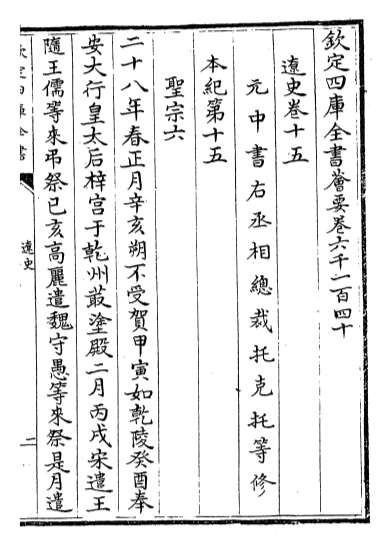 欽定四庫全書薈要卷六千二百四十
遼史卷十五
元中書右丞相總裁托克托等修
本紀第十五
聖宗六
二十八年春正月辛亥朔不受賀甲寅如乾陵癸酉奉
安大行皇太后梓宫于乾州菆塗殿二月丙戌宋遣王
隨王儒等來弔祭己亥高麗遣魏守愚等來祭是月遣
遼史